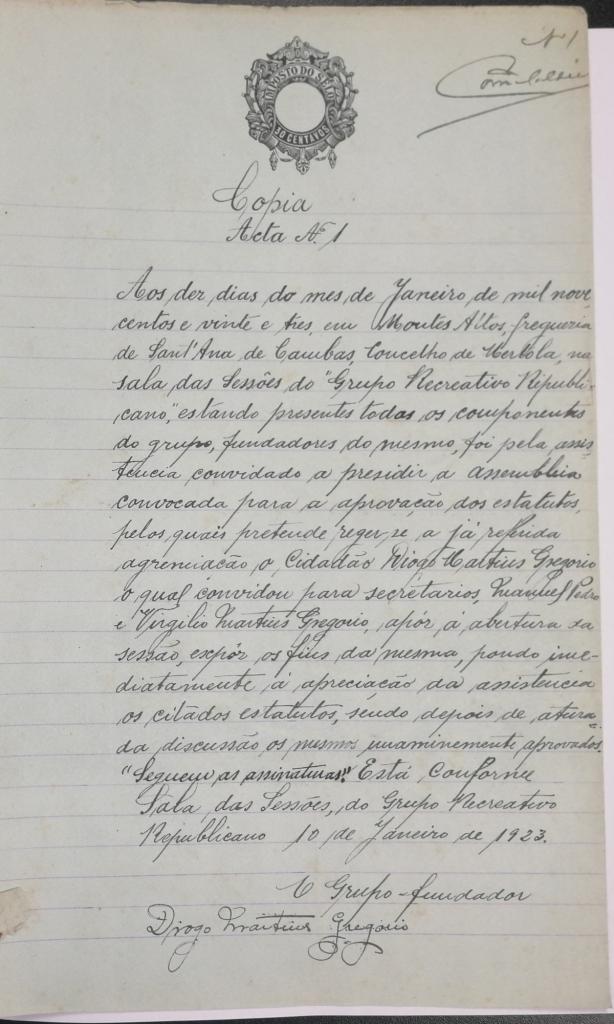 Nº 1
IMPOSTO DO SELO
30 CENTAVOS
Copia
Acta Nº 1
Aos dez dias do mes de Janeiro de mil nove-
centos e vinte e tres, em Montes Altos, freguezia
de Sant'Ana de Cambas, Concelho de Mertola, na
sala das Sessões do "Grupo Recreativo Republi-
cano", estando presentes todas os componentes
do grupo, fundadores do mesmo, foi pela assis-
tencia convidado a presidir a assembleia
convocada para a aprovação dos estatutos,
pelos quais pretende reger-se a já referida
agremiação o Cidadão Diogo Martins Gregorio
o qual convidou para secretarios, Manuel Pedro
e Virgilio Martins Gregorio, apór á abertura da
sessão, expôr os fins da mesma, pondo ime-
diatamente á apreciação da assistencia
os citados estatutos, sendo depois de atura-
da discussão os mesmos unaminemente aprovados.
"Seguem as assinaturas". Está conforme
Sala das Sessões, do Grupo Recreativo
Republicano 10 de Janeiro de 1923.
O Grupo-fundador
Diogo Martins Gregorio